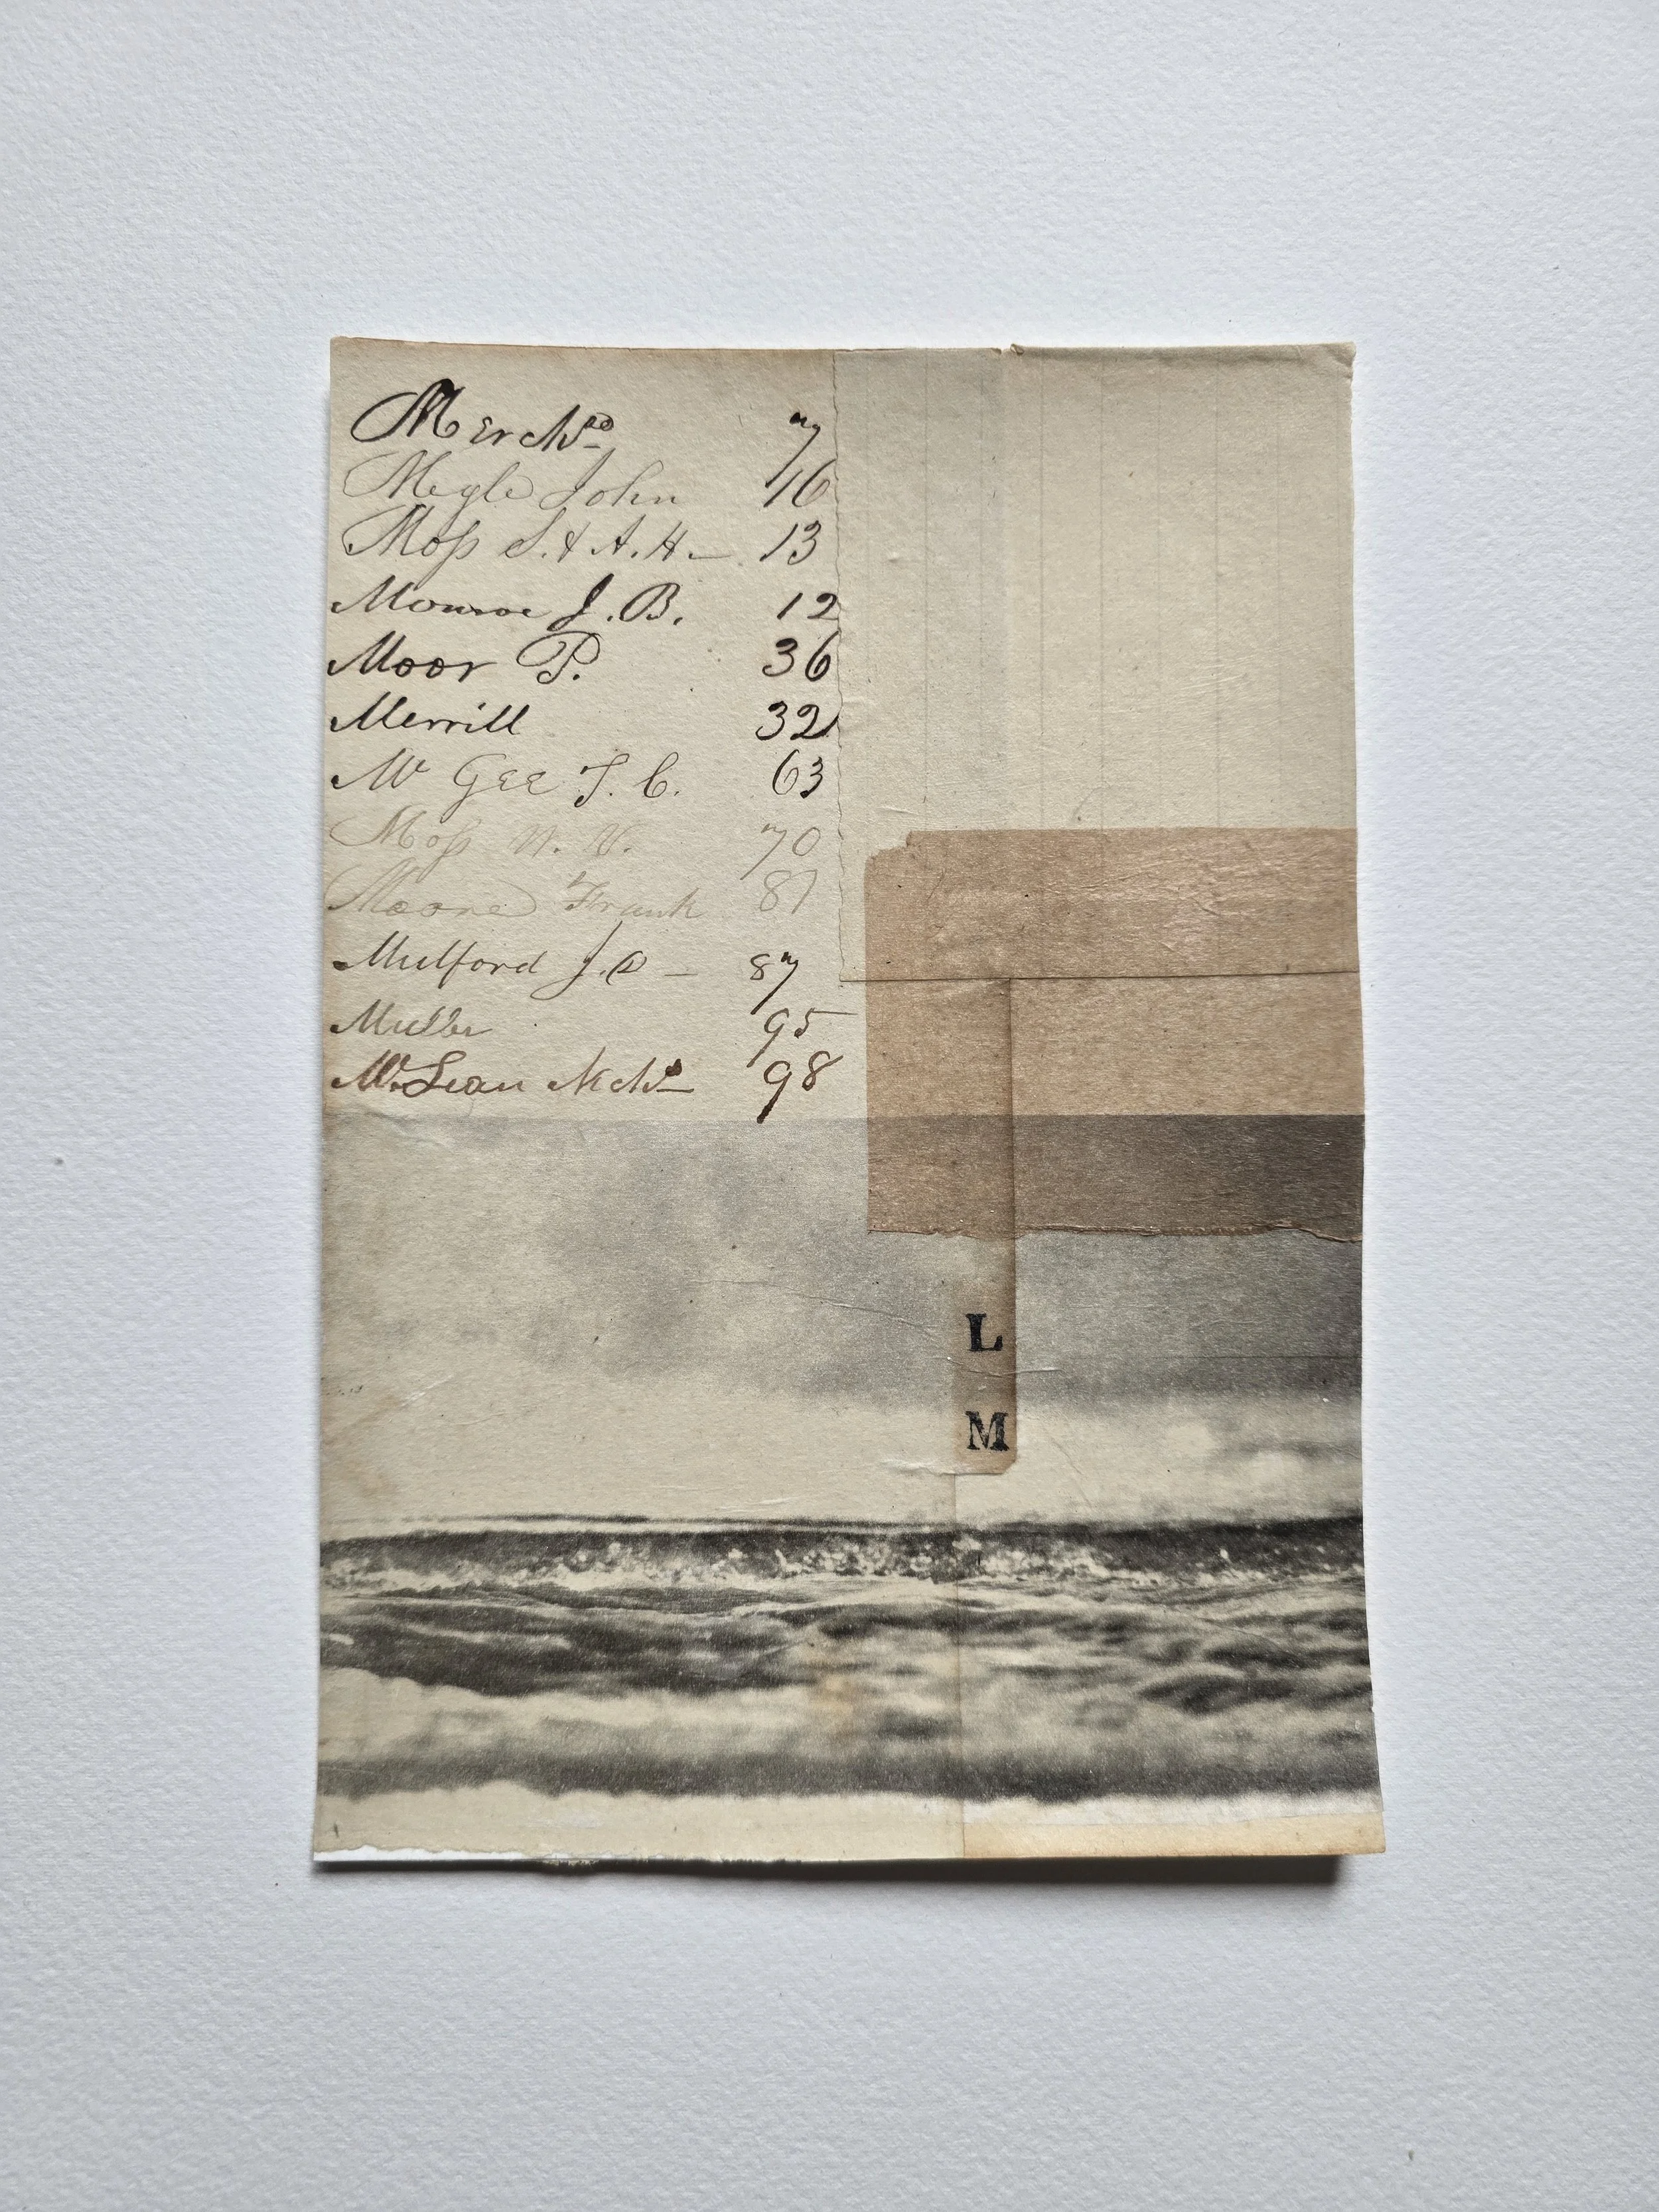 Merchd 7
Megle John 16
Moss S. & A. H. — 13
Monroe J. B. 12
Moor P. 36
Merrill 32
Mc Gee T. C. 63
Moss W. V. 70
Moore Frank 87
Mulford J. — 87
Muller 95
McLean 98
L
M